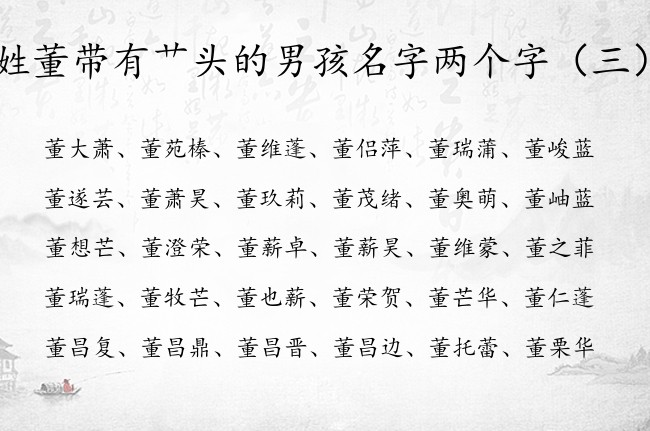 姓董带有艹头的男孩名字两个字（三）
董大萧、董苑榛、董维蓬、董侣萍、董瑞蒲、董峻蓝
董遂芸、董萧昊、董玖莉、董茂绪、董奥萌、董岫蓝
董想芒、董澄荣、董薪卓、董薪昊、董维蒙、董之菲
董瑞蓬、董牧芒、董也薪、董荣贺、董芒华、董仁蓬
董昌复、董昌鼎、董昌晋、董昌边、董托蕾、董栗华